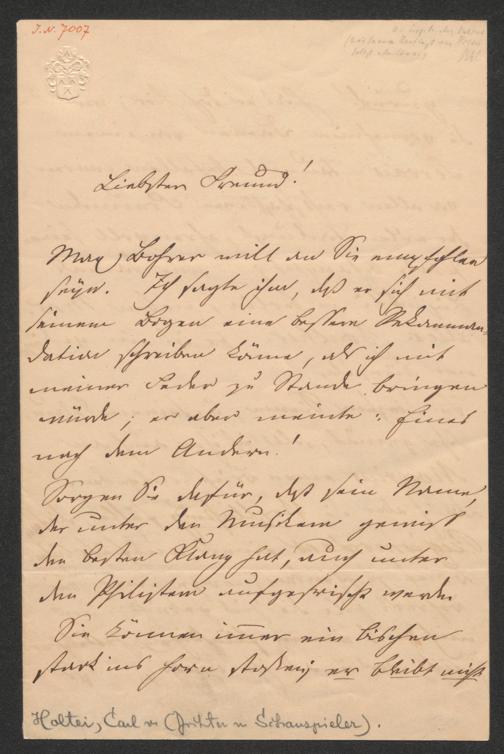 I.N. 7007
Liebster Freund!
Max Bohrer will an Sie empfohlen
seyn. Ich sagte ihm, daß er sich mit
seinem Bogen eine bessere Rekomman-
dation schreiben könne, als ich mit
meiner Feder zu Stande bringen
würde; er aber meinte: Eines
nach dem Andern!
Sorgen Sie dafür, daß sein Name,
der unter den Musikern gewiß
den besten Klang hat, auch unter
den Philistern aufgefrischt werde
Sie können immer ein bischen
stark ins Horn stoßen; er bleibt nicht
Holtei, Carl v (Dichter u Schauspieler).